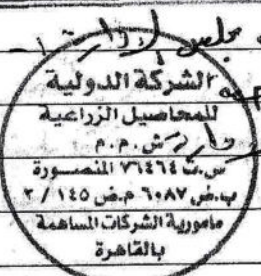 مجلس إدارة
الشركة الدولية
للمحاصيل الزراعية
ش.م.م
س.ت ٧٦٤٦٤ المنصورة
ب.ض ٦٠٨٧ م.ض ١٤٥ / ٢
مامورية الشركات المساهمة
بالقاهرة